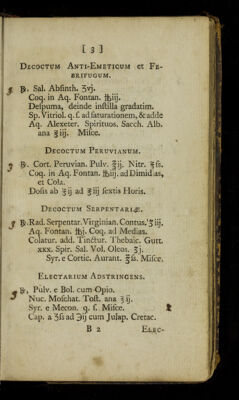 [ 3 ]
DECOCTUM ANTI-EMETICUM et FE-
BRIFUGUM.
℞. Sal. Absinth. ʒvj.
Coq. in Aq. Fontan. ℔iij.
Despuma, deinde instilla gradatim.
Sp. Vitriol. q. s. ad saturationem, & adde
Aq. Alexeter. Spirituos. Sacch. Alb.
ana ℥iij. Misce.
DECOCTUM PERUVIANUM.
℞. Cort. Peruvian. Pulv. ℥ij. Nitr. ʒſs.
Coq. in Aq. Fontan. ℔iij. ad Dimidias,
et Cola.
Dosis ab ℥ij ad ℥iij sextis Horis.
DECOCTUM SERPENTARIÆ.
℞. Rad. Serpentar. Virginian. Contus. ʒiij.
Aq. Fontan. ℔j. Coq. ad Medias.
Colatur. add. Tinctur. Thebaic. Gutt.
xxx. Spir. Sal. Vol. Oleos. ʒj.
Syr. e Cortic. Aurant. ℥ſs. Misce.
ELECTARIUM ADSTRINGENS.
℞. Pulv. e Bol. cum Opio.
Nuc. Moschat. Tost. ana ʒij.
Syr. e Mecon. q. s. Misce.
Cap. a ʒſs ad ℈ij cum Julap. Cretac.
B 2 ELEC-